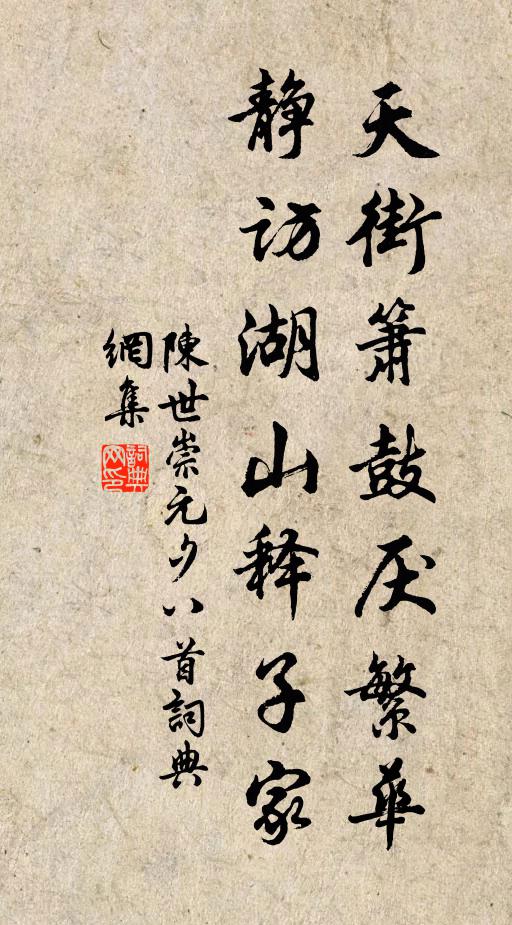 天街箫鼓厌繁华
静访湖山释子家
陳世崇元夕八首詞典
網集
詞典
网印